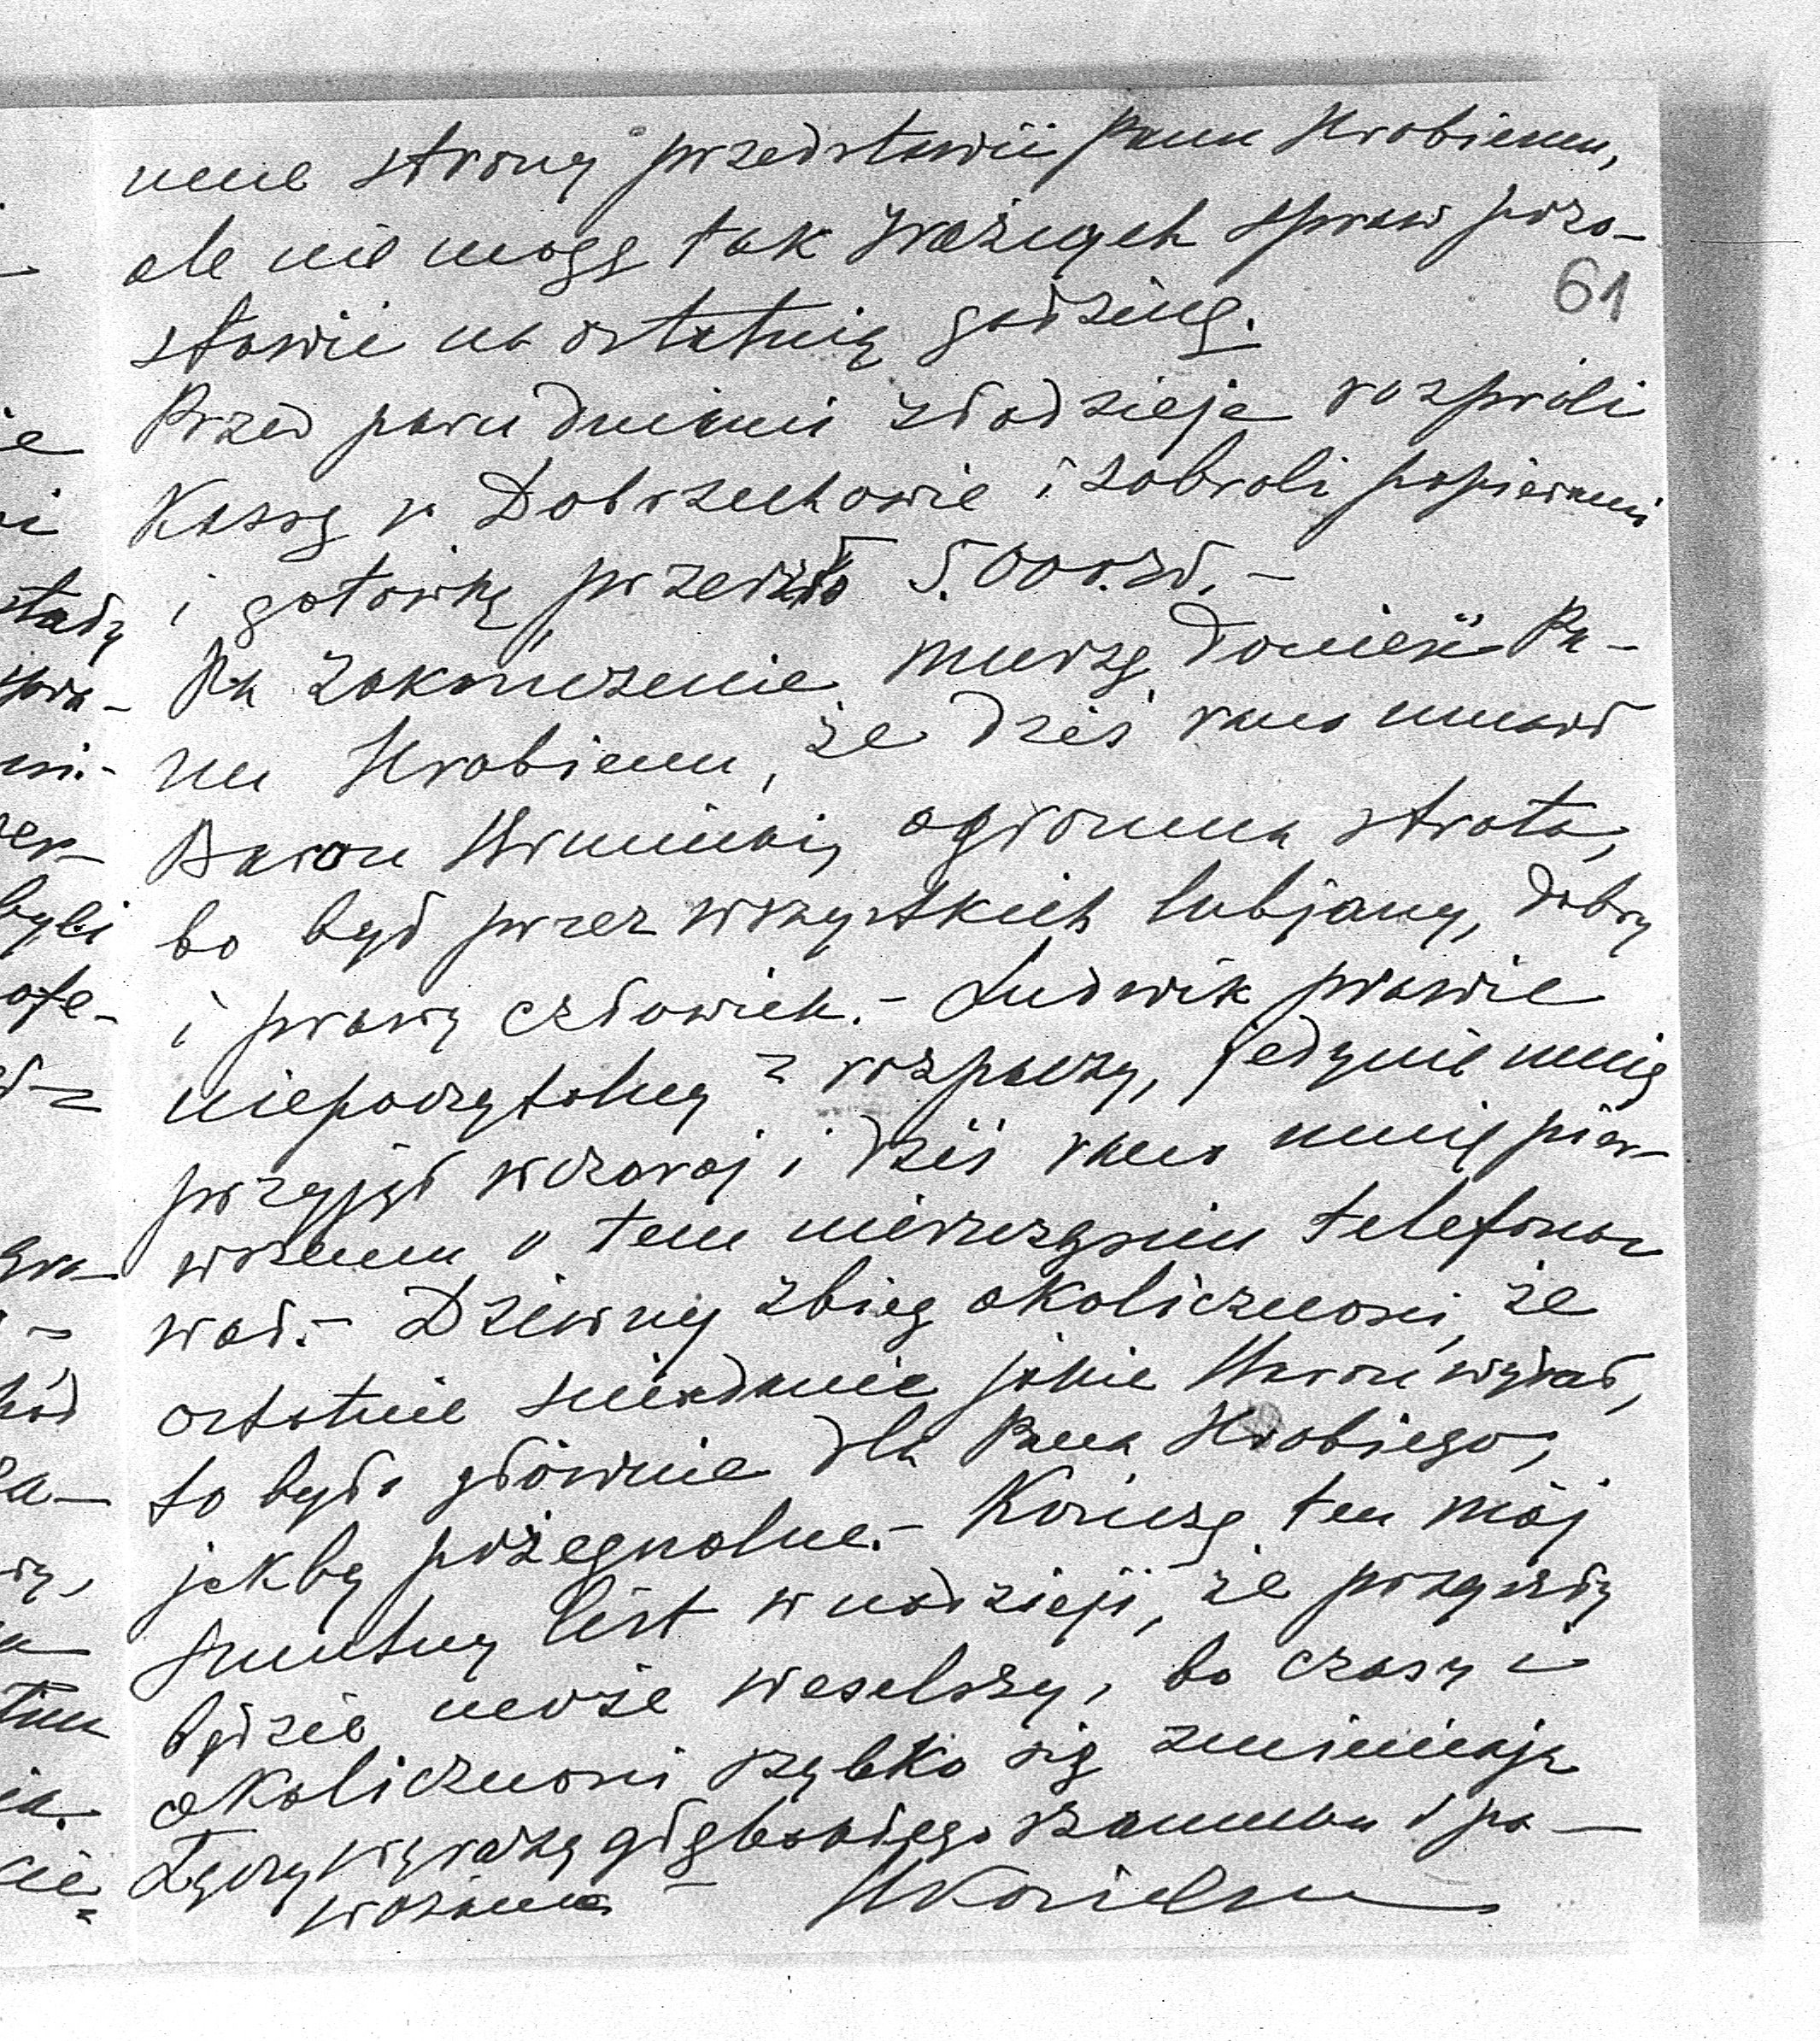 mne strony przedstawić Panu Hrabiemu,
ale nie mogę tak ważnych spraw pozo-
stawić na ostatnią godzinę.
61
Przed paru dniami złodzieje rozpruli
Kassę w Dobrzechowie i zabrali papierami
i gotówką przeszło 5.000 zł. –
Na zakończenie muszę donieść Pa-
nu Hrabiemu, że dziś rano umarł
Baron ogromna strata,
bo był przez wszystkich lubjany, dobry
i prawy człowiek. – Ludwik prawie
niepoczytalny z rozpaczy, jedynie mnie
przyjął wczoraj i dziś rano mnie pier-
wszemu o tem nieszczęściu telefono
wał. – Dziwny zbieg okoliczności, że
ostatnie śniadanie jakie Baron wydał,
to było głównie dla Pana Hrabiego,
jakby pożegnalne. – Kończę ten mój
smutny list w nadzieji, że przyszły
będzie może weselszy, bo czasy i
okoliczności szybko się zmieniają
Łączę wyrazy głębokiego szacunku i po –
ważania –